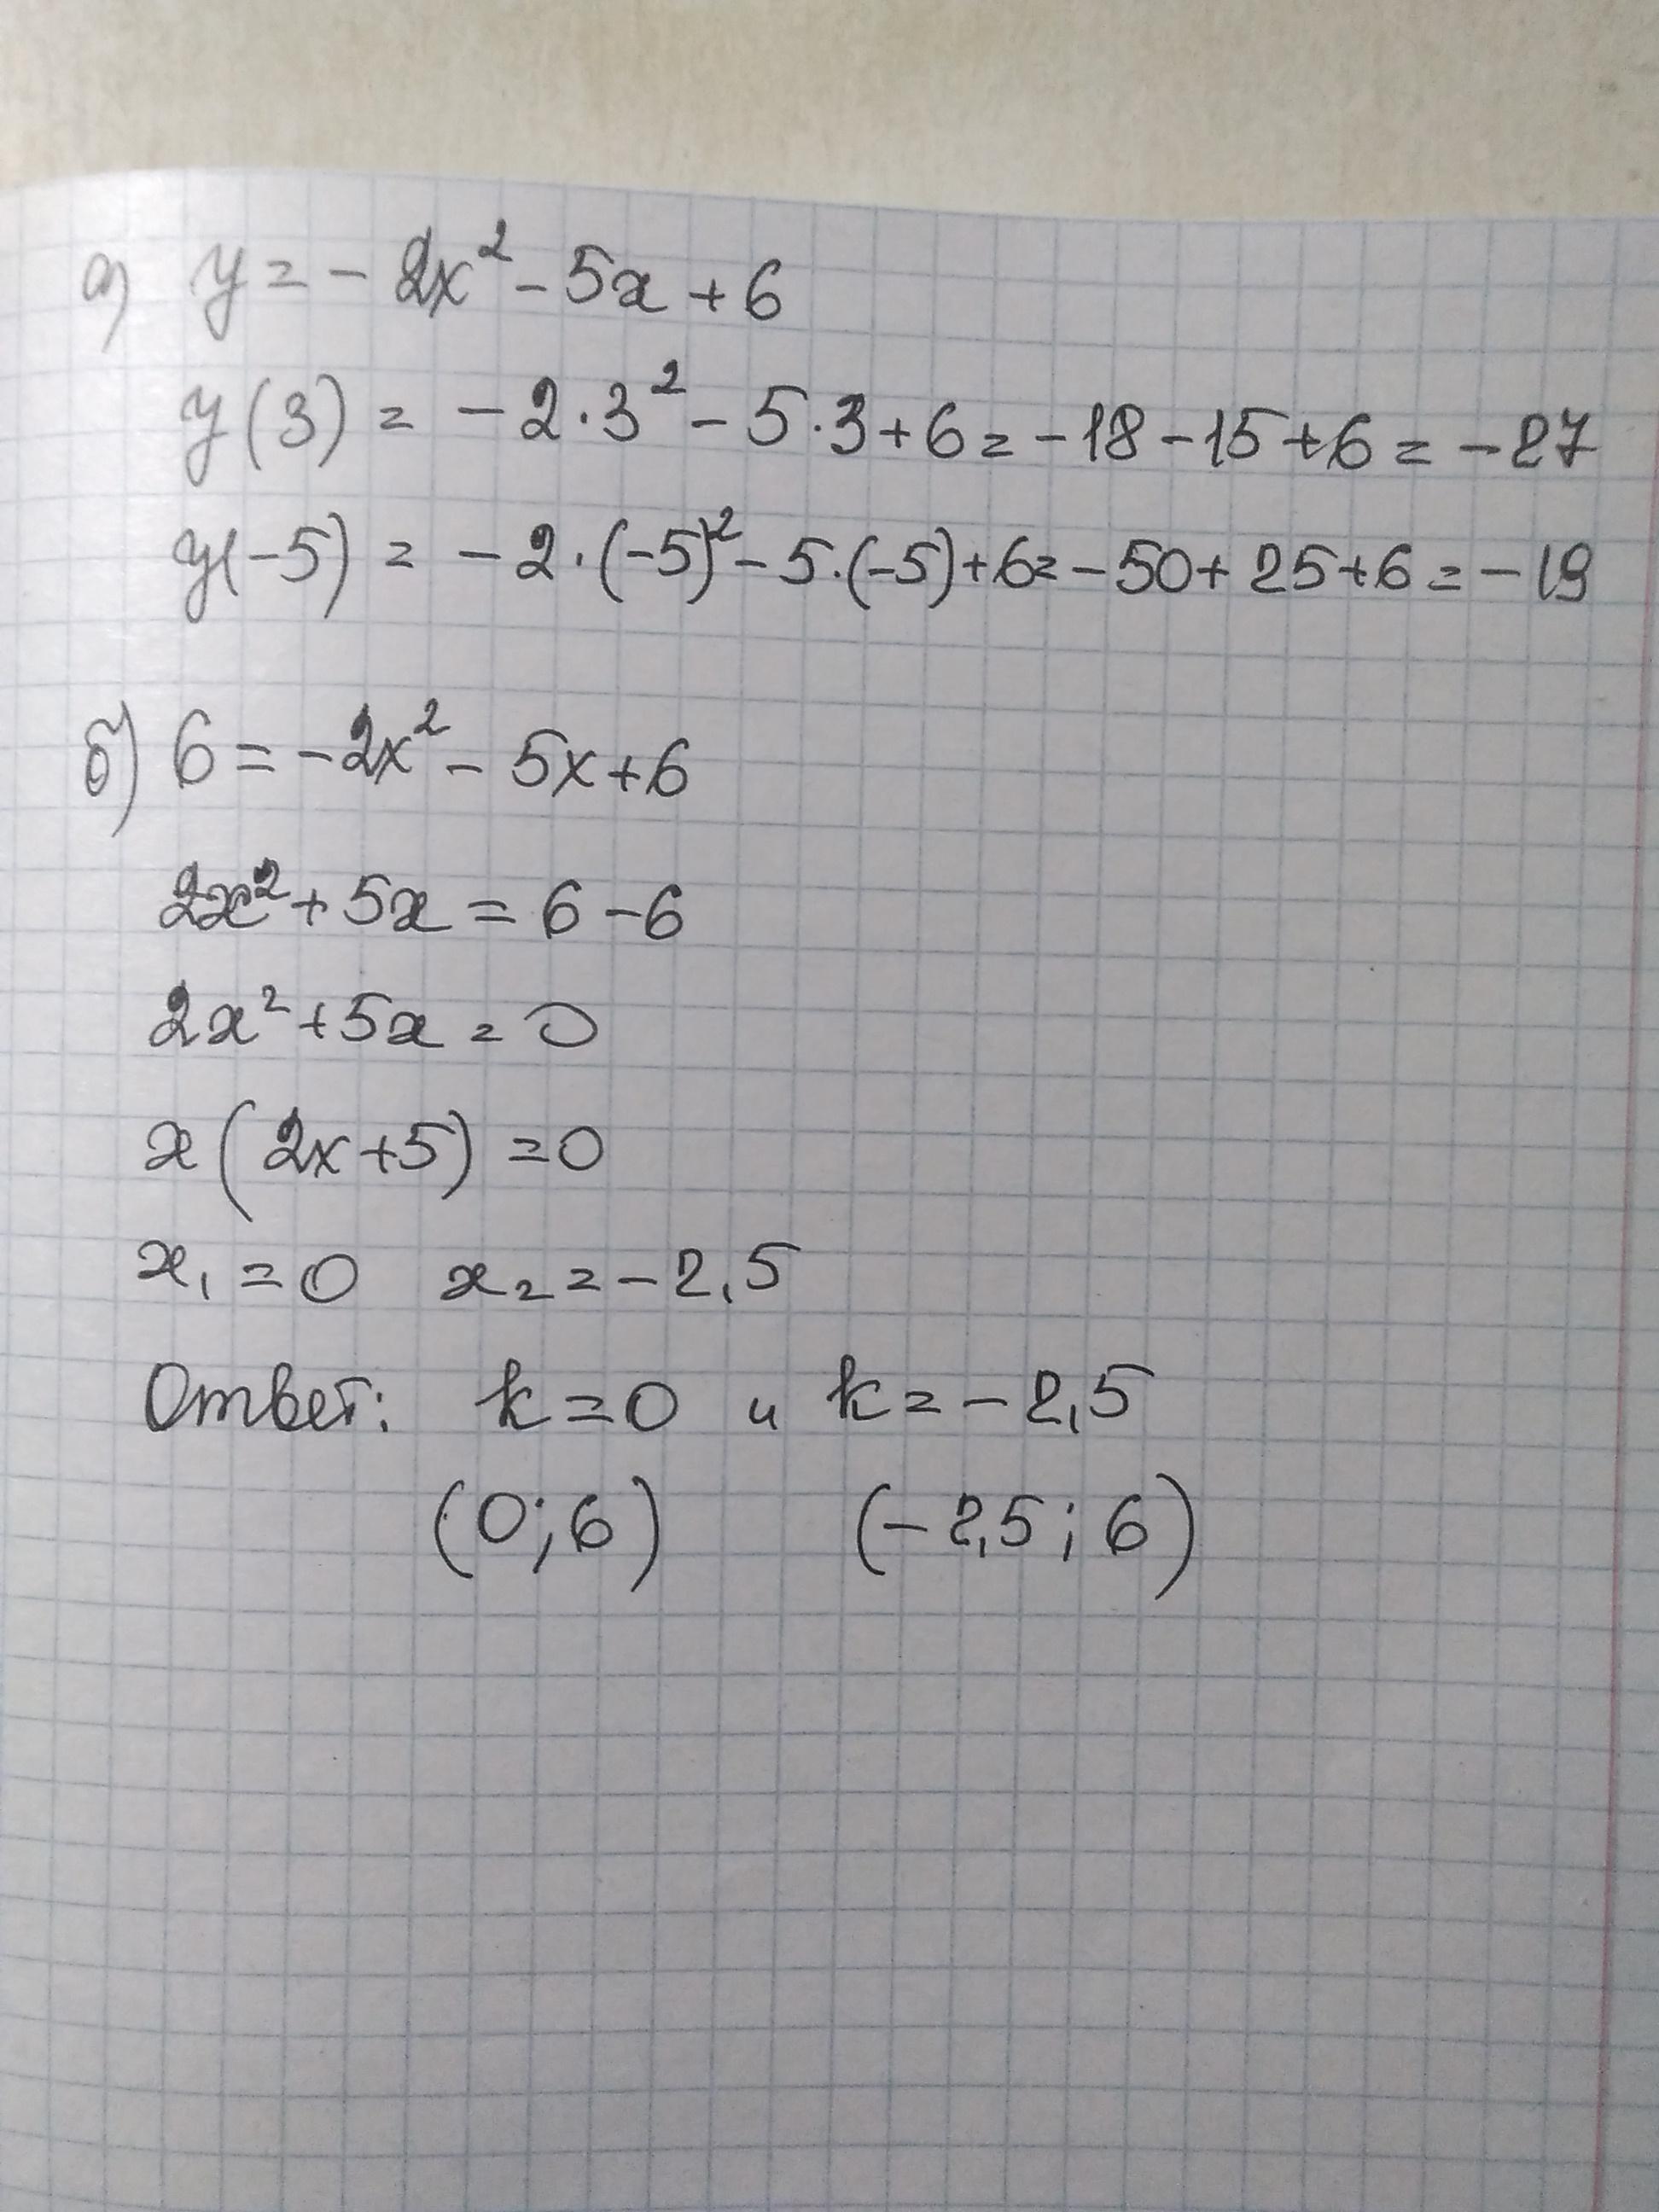 а) y = - 2x² - 5x + 6
y(3) = - 2·3² - 5·3 + 6 = -18 - 15 + 6 = -27
y(-5) = - 2·(-5)² - 5·(-5) + 6 = -50 + 25 + 6 = -19
б) 6 = -2x² - 5x + 6
2x² + 5x = 6 - 6
2x² + 5x = 0
x(2x + 5) = 0
x₁ = 0 x₂ = -2,5
Ответ: k = 0 и k = -2,5
(0; 6) (-2,5; 6)